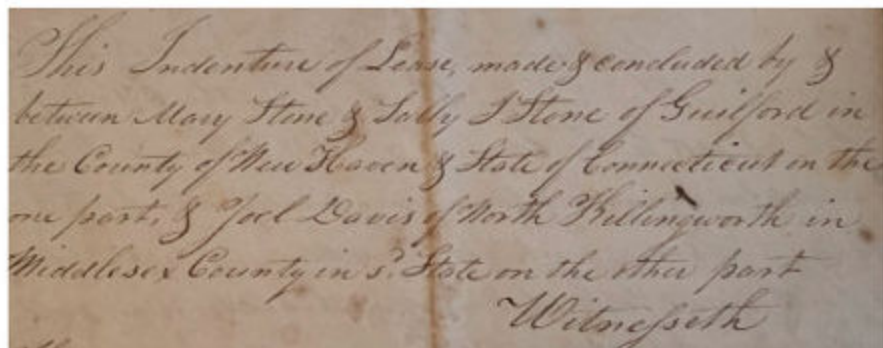 This Indenture of Lease, made & concluded by &
between Mary Stone & Sally S Stone of Guilford in
the County of New Haven & State of Connecticut on the
one part, & Joel Davis of North Killingworth in
Middlesex County in sd. State on the other part
Witnesseth